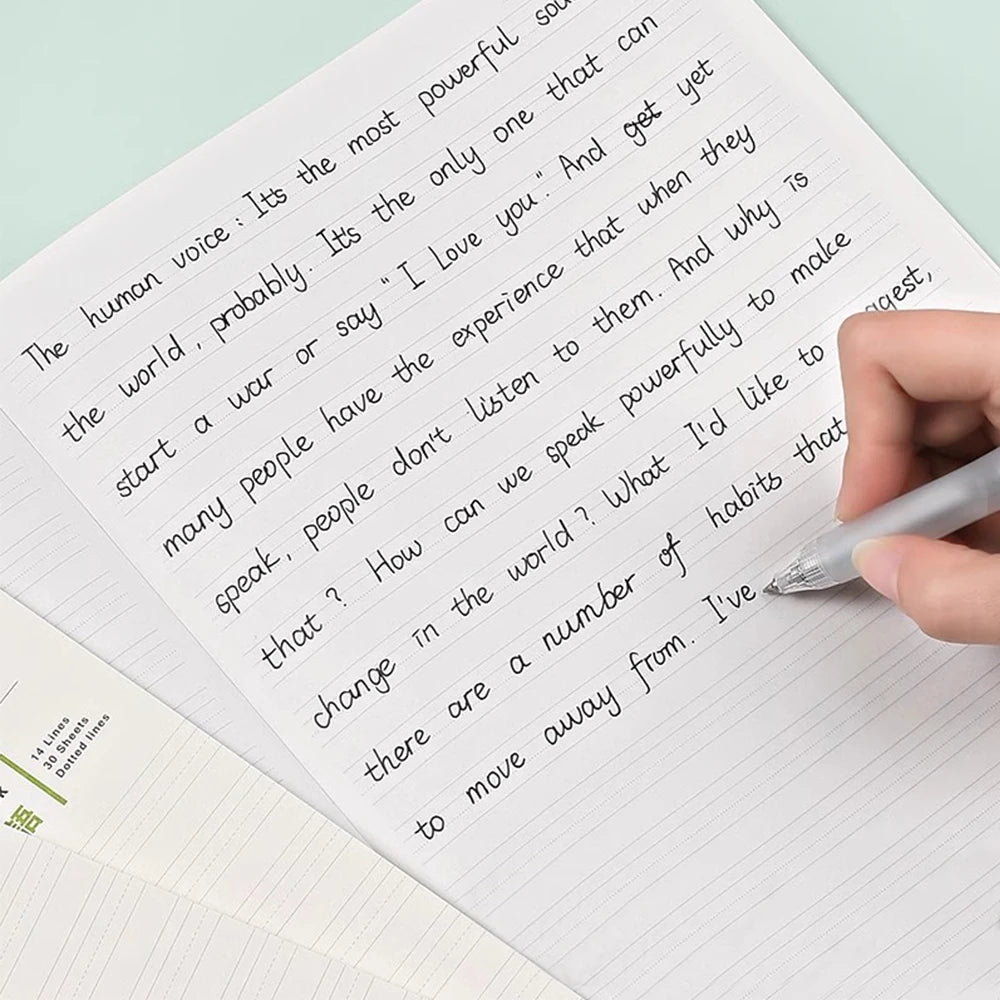 The human voice : It's the most powerful
the world, probably. It's the only one that can
start a war or say " I Love you". And get yet
many people have the experience that when they
speak, people don't listen to them. And why is
that ? How can we speak powerfully to make
change in the world ? What I'd like to
there are a number of habits that
to move away from. I've
14 Lines
30 Sheets
Dotted lines